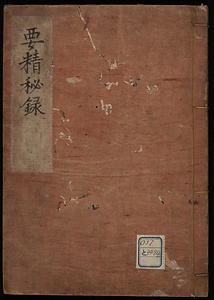 要精秘録